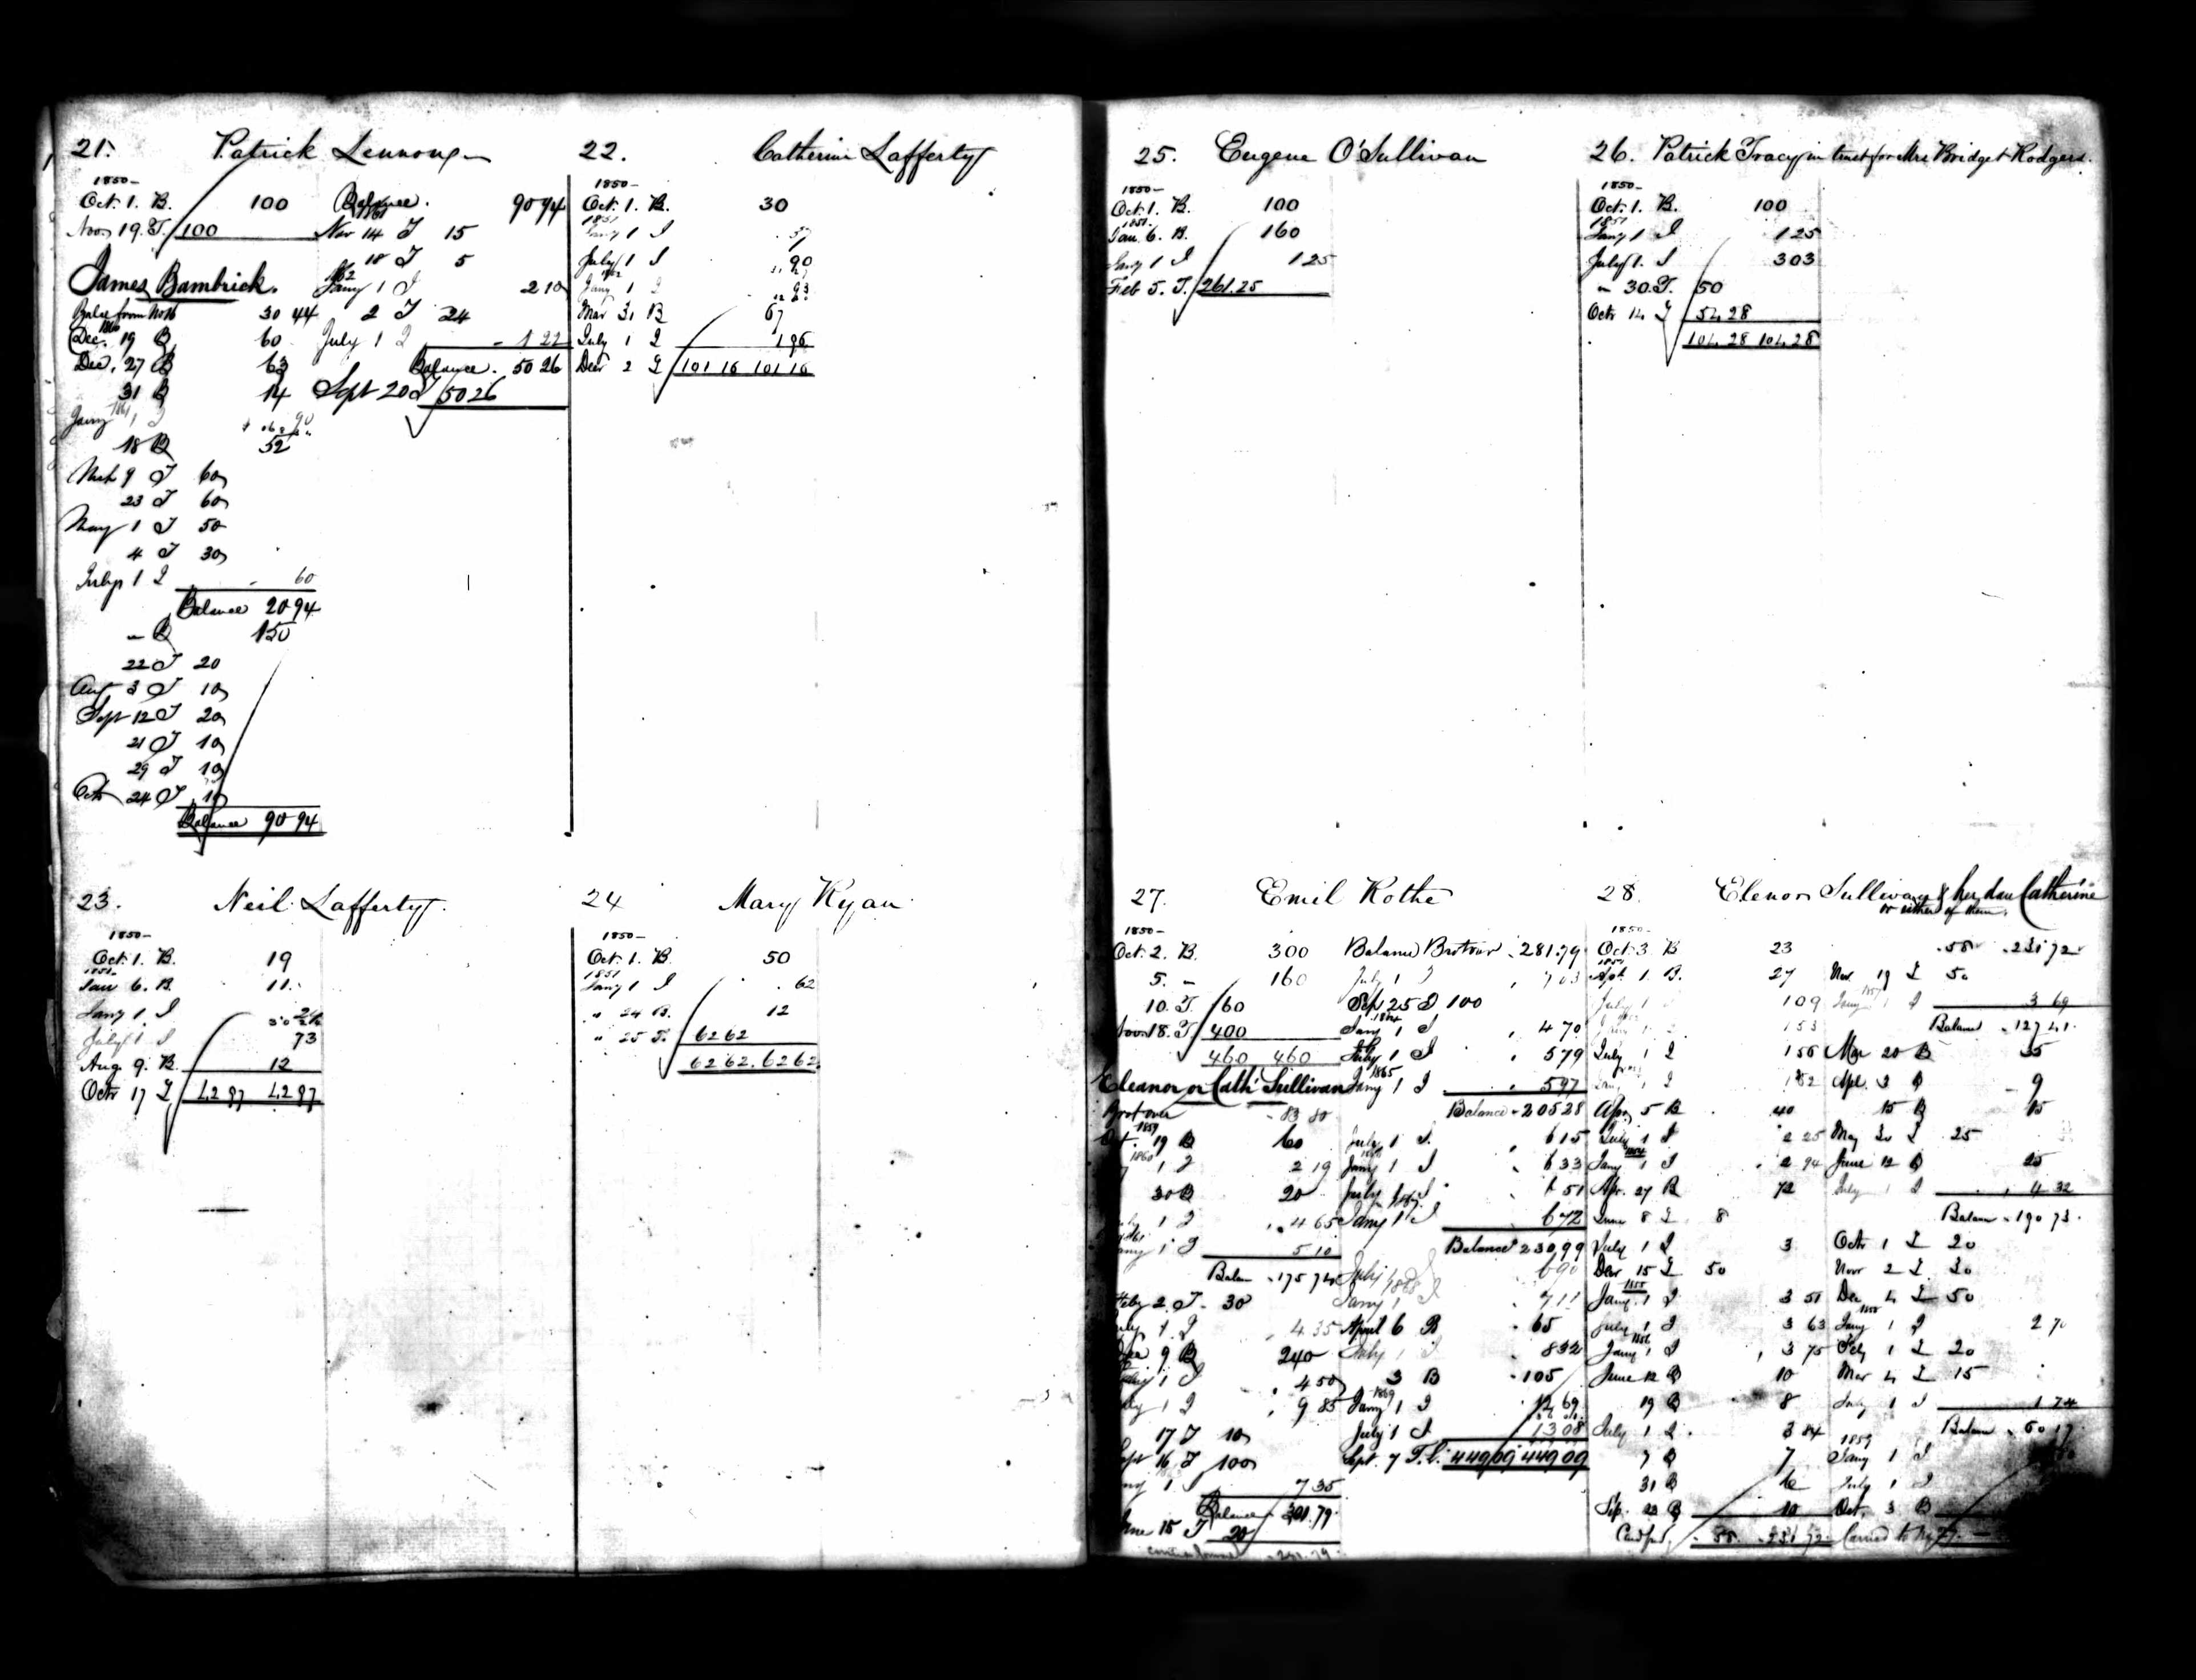 21. Patrick Lennon
1850-
Oct. 1. B. 100
Nov 19. T. 100
James Bambrick.
Balce from No 16 30 44
1860
Dec. 19 B 60
Dec. 27 B 63
31 B 14
1861
Jany 1 I 90
18 B 52
Mch 9 T 60
23 T 60
May 1 T 50
4 T 30
July 1 I 60
Balance 20 94
" B 150
22 T 20
Aug 3 T 10
Sept 12 T 20
21 T 10
29 T 10
Octr 24 T 10
Balance 90 94
Balance. 90 94
1861
Nov 14 T 15
18 T 5
1862
Jany 1 I 2 10
2 T 24
July 1 I 1 22
Balance. 50 26
Sept 20 T 50 26
22. Catherine Lafferty
1850-
Oct. 1. B. 30
1851
Jany 1 I . 37
July 1 I . 90
1852
Jany 1 I 93
Mar 31 B 67
July 1 I 1 96
Decr 2 T 101 16 101 16
23. Neil Lafferty.
1850-
Oct. 1. B. 19
1851-
Jan 6. B. 11.
Jany 1. I 24
July 1 I 73
Aug 9. B. 12
Octr 17 T 42 87 42 87
24 Mary Ryan
1850-
Oct. 1. B. 50
1851
Jany 1 I . 62
" 24 B. 12
" 25 T. 62 62
62 62. 62 62.
25. Eugene O'Sullivan
1850-
Oct. 1. B. 100
1851.
Jan. 6. B. 160
Jany 1 I 1 25
Feb 5. T. 261.25
26. Patrick Tracy in trust for Mrs Bridget Rodgers.
1850-
Oct. 1. B. 100
1851
Jany 1 I 1 25
July 1. I 3 03
" 30. T. 50
Octr 14 T 54 28
104 28 104 28
27. Emil Rothe
1850-
Oct. 2. B. 300
5. " 160
10. T. 60
Nov. 18. T. 400
460 460
Eleanor or Cath' Sullivan
Brot over 83 80
1859
Oct. 19 B 60
1860
1 I 2 19
30 B 20
1 I 4 65
1861
Jany 1 I 5 10
Balan 175 74
Feby 2. T. 30
July 1. I 4 35
Dec 9 B 240
Jany 1 I 4 50
July 1 I 9 85
17 T 10
Sept 16 T 100
1 I 7 35
Balance 301.79.
June 15 T 20
281.79
Balance Brot over 281.79
July 1 I 7 03
Sep. 25 T 100
1864
Jany 1 I 4 70
July 1 I 5 79
1865
Jany 1 I 5 97
Balance 205 28
July 1 I. 6 15
1866
Jany 1 I 6 33
July 1 I 6 51
1867.
Jany 1 I 6 72
Balance 230,99
July 1 I 6 90
1868
Jany 1 I 7 11
April 6 B 65
July 1 I 8 32
3 B 105
1869
Jany 1 I 12 69
July 1 I 13 08
Sept. 7 T. 449,09 449 09
28. Elenor Sullivan & her dau Catherine
or either of them.
1850-
Oct. 3. B 23
1851
Apl. 1. B. 27
July 1 1 09
1 53
July 1 I 1 56
Jany 1 I 1 82
Apr. 5 B 40
July 1 I 2 25
1854
Jany 1 I 2 94
Apr. 27 B 72
June 8 T 8
July 1 I 3
Decr 15 T 50
1855
Jany. 1 I 3 51
July 1 I 3 63
1856
Jany 1 I 3 75
June 12 B 10
19 B 8
July 1 I. 3 84
7 B 7
31 B
Sep. 22 B 10
Card fwd, 58. 231 72
58 231 72
Nov. 19 T 50
1857
Jany 1 I 3 69
Balance 127 41.
Mar 20 B 35
Apl. 3 B 9
15 B 15
May 20 T 25
June 12 B 25
July 1 I 4 32
Balan 190 73.
Octr 1 T 20
Novr 2 T 30
Dec 4 T 50
1858
Jany 1 I 2 70
Feby 1 T 20
Mar 4 T 15
July 1 I 1 74
Balan 60 17
1859
Jany 1 I
July 1 I
Oct. 3 B
Carried to No 27.